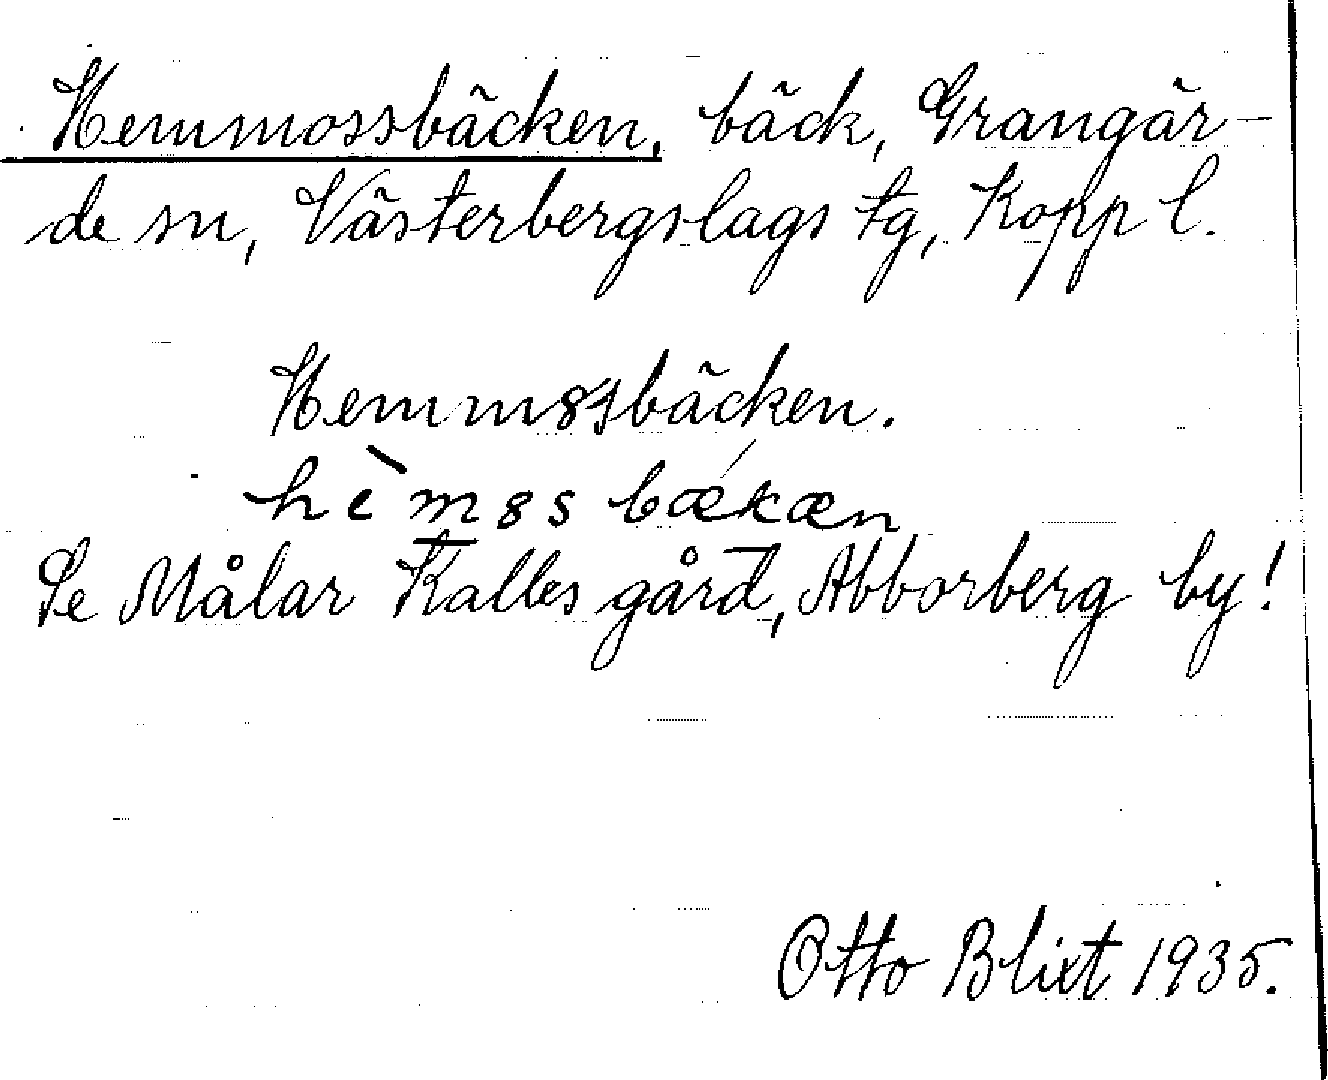 Hemmossbäcken, bäck, Grangär-
de sn, Västerbergslags tg, Kopp l.
Hemm8ssbäcken.
hèm8s bækæn
Se Målar Kalles gård, Abborberg by!
Otto Blixt 1935.